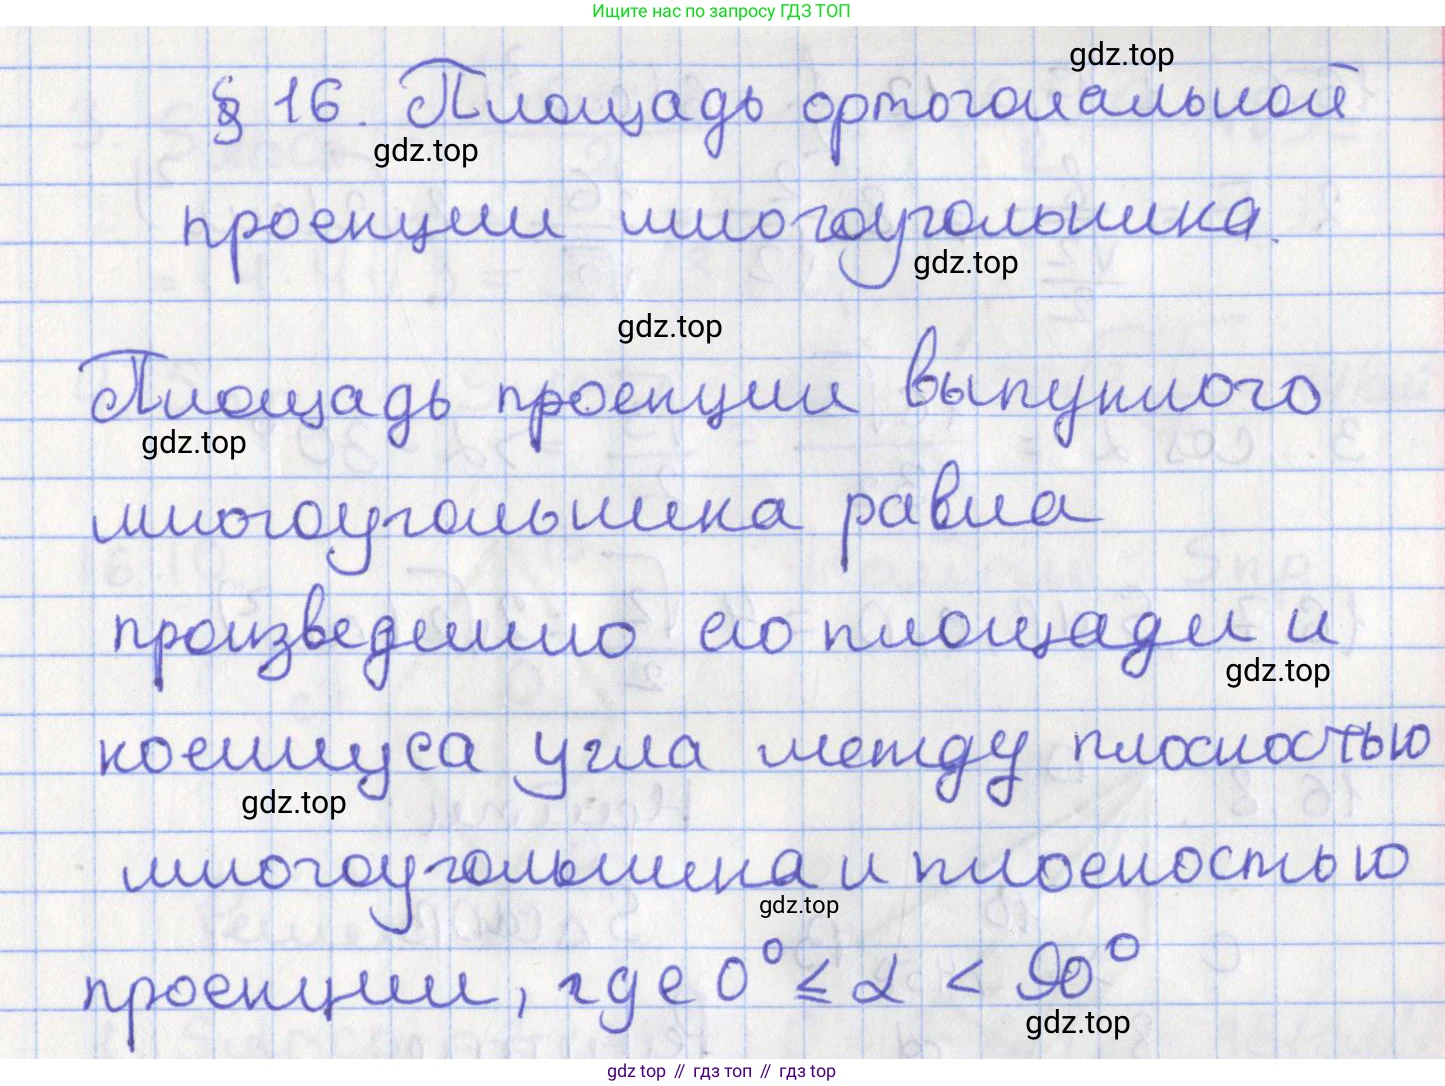 Ищите нас по запросу ГДЗ ТОП
gdz.top
§ 16. Площадь ортогональной
gdz.top
проекции многоугольника.
gdz.top
gdz.top
Площадь проекции выпуклого
gdz.top
многоугольника равна
произведению его площади и
gdz.top
косинуса угла между плоскостью
gdz.top
многоугольника и плоскостью
gdz.top
проекции, где 0° ≤ α < 90°
gdz.top
gdz top // гдз топ // гдз top